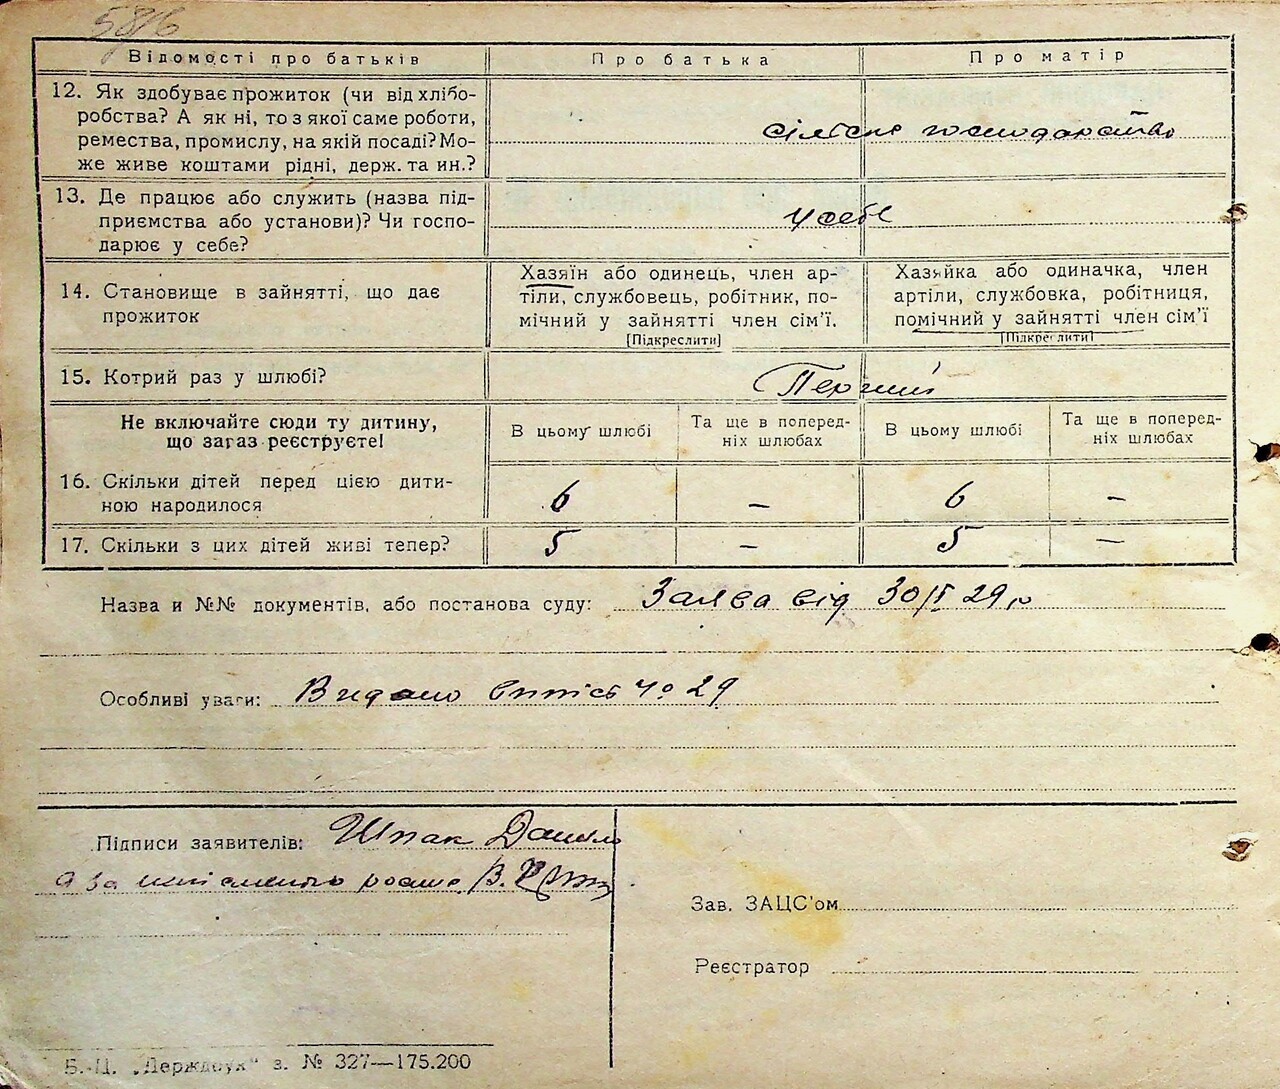 58/6
Відомості про батьків
Про батька
Про матір
12. Як здобуває прожиток (чи від хлібо-
робства? А як ні, то з якої саме роботи,
ремества, промислу, на якій посаді? Мо-
же живе коштами рідні, держ. та ин.?
сільське господарство
13. Де працює або служить (назва під-
приємства або установи)? Чи госпо-
дарює у себе?
у себе
14. Становище в зайнятті, що дає
прожиток
Хазяїн або одинець, член ар-
тіли, службовець, робітник, по-
мічний у зайнятті член сім'ї.
[Підкреслити]
Хазяйка або одиначка, член
артіли, службовка, робітниця,
помічний у зайнятті член сім'ї
[Підкреслити]
15. Котрий раз у шлюбі?
Перший
Не включайте сюди ту дитину,
що загаз реєструєте!
В цьому шлюбі
Та ще в поперед-
ніх шлюбах
В цьому шлюбі
Та ще в поперед-
ніх шлюбах
16. Скільки дітей перед цією дити-
ною народилося
6 – 6 –
17. Скільки з цих дітей живі тепер?
5 – 5 –
Назва и №№ документів, або постанова суду: Заява від 30/I 29 р
Особливі уваги: Видано витяг № 29
Підписи заявителів: Шпак Данило
а за
Зав. ЗАЦС'ом
Реєстратор
Б.-Ц. „Держдрук" з. № 327—175.200